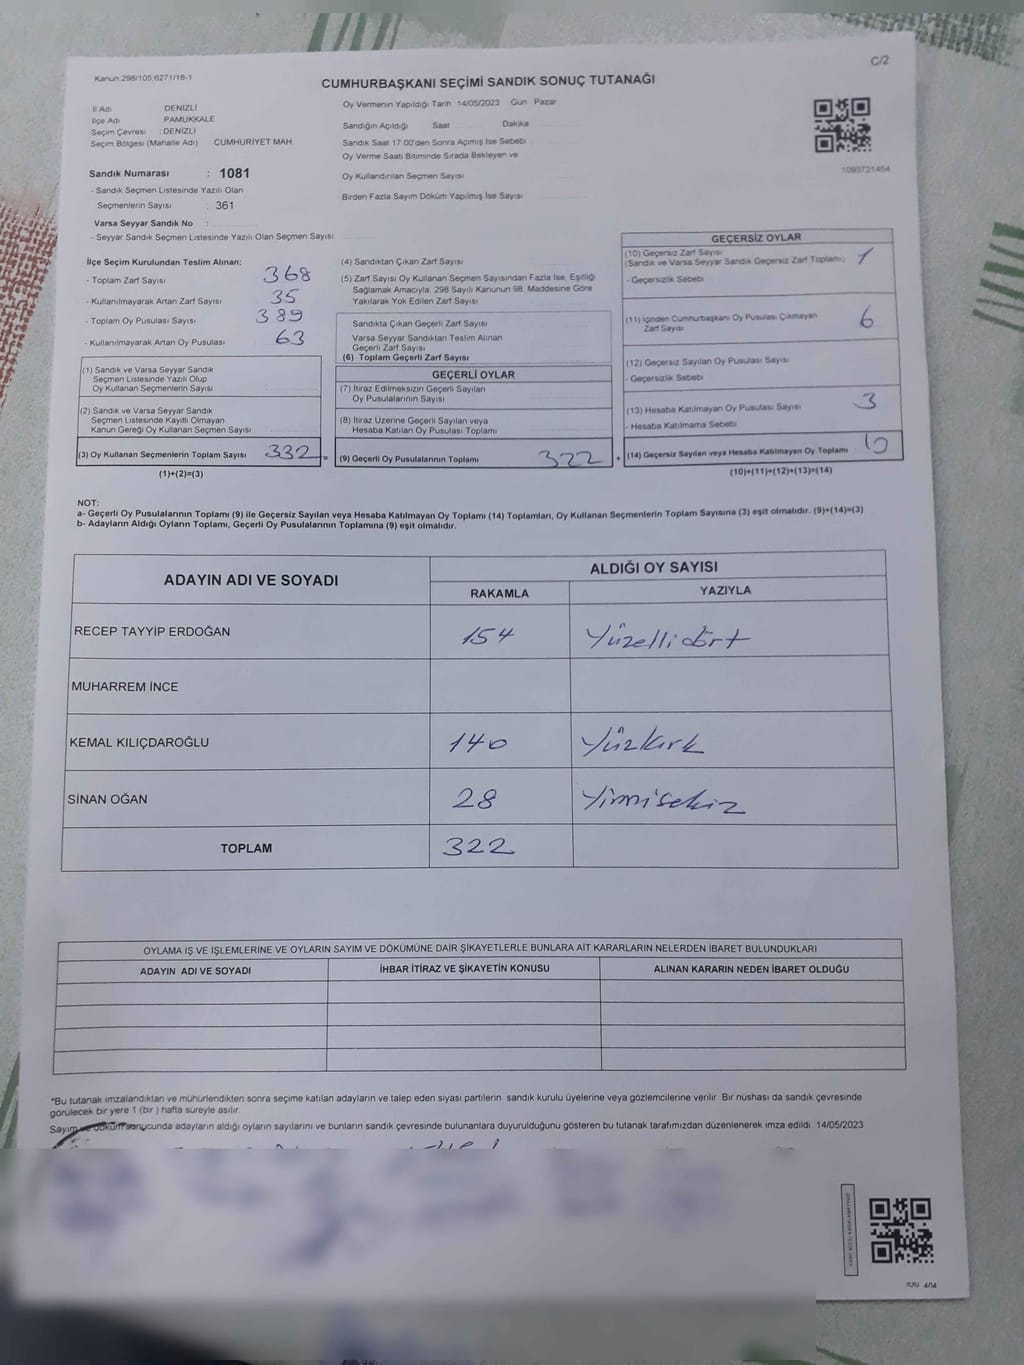 C/2
Kanun 298/105.6271/18-1
CUMHURBAŞKANI SEÇİMİ SANDIK SONUÇ TUTANAĞI
İl Adı DENİZLİ
İlçe Adı PAMUKKALE
Seçim Çevresi : DENİZLİ
Seçim Bölgesi (Mahalle Adı) CUMHURİYET MAH
Sandık Numarası : 1081
- Sandık Seçmen Listesinde Yazılı Olan
Seçmenlerin Sayısı : 361
Varsa Seyyar Sandık No :
- Seyyar Sandık Seçmen Listesinde Yazılı Olan Seçmen Sayısı
Oy Vermenin Yapıldığı Tarih 14/05/2023 Gün Pazar
Sandığın Açıldığı Saat Dakika
Sandık Saat 17.00'den Sonra Açımış İse Sebebi
Oy Verme Saati Bitiminde Sırada Bekleyen ve
Oy Kullandırılan Seçmen Sayısı
Birden Fazla Sayım Döküm Yapılmış İse Sayısı
1093721454
İlçe Seçim Kurulundan Teslim Alınan;
- Toplam Zarf Sayısı 368
- Kullanılmayarak Artan Zarf Sayısı 35
- Toplam Oy Pusulası Sayısı 389
- Kullanılmayarak Artan Oy Pusulası 63
(1) Sandık ve Varsa Seyyar Sandık
Seçmen Listesinde Yazılı Olup
Oy Kullanan Seçmenlerin Sayısı
(2) Sandık ve Varsa Seyyar Sandık
Seçmen Listesinde Kayıtlı Olmayan
Kanun Gereği Oy Kullanan Seçmen Sayısı
(3) Oy Kullanan Seçmenlerin Toplam Sayısı 332 =
(1)+(2)=(3)
(4) Sandıktan Çıkan Zarf Sayısı
(5) Zarf Sayısı Oy Kullanan Seçmen Sayısından Fazla İse, Eşitliği
Sağlamak Amacıyla, 298 Sayılı Kanunun 98. Maddesine Göre
Yakılarak Yok Edilen Zarf Sayısı
Sandıkta Çıkan Geçerli Zarf Sayısı
Varsa Seyyar Sandıktan Teslim Alınan
Geçerli Zarf Sayısı
(6) Toplam Geçerli Zarf Sayısı
GEÇERLİ OYLAR
(7) İtiraz Edilmeksizin Geçerli Sayılan
Oy Pusulasının Sayısı
(8) İtiraz Üzerine Geçerli Sayılan veya
Hesaba Katılan Oy Pusulası Toplamı
(9) Geçerli Oy Pusulalarının Toplamı 322 +
GEÇERSİZ OYLAR
(10) Geçersiz Zarf Sayısı
(Sandık ve Varsa Seyyar Sandık Geçersiz Zarf Toplamı) 1
- Geçersizlik Sebebi
(11) İçinden Cumhurbaşkanı Oy Pusulası Çıkmayan
Zarf Sayısı 6
(12) Geçersiz Sayılan Oy Pusulası Sayısı
- Geçersizlik Sebebi
(13) Hesaba Katılmayan Oy Pusulası Sayısı 3
- Hesaba Katılmama Sebebi
(14) Geçersiz Sayılan veya Hesaba Katılmayan Oy Toplamı 10
(10)+(11)+(12)+(13)=(14)
NOT:
a- Geçerli Oy Pusulalarının Toplamı (9) ile Geçersiz Sayılan veya Hesaba Katılmayan Oy Toplamı (14) Toplamları, Oy Kullanan Seçmenlerin Toplam Sayısına (3) eşit olmalıdır. (9)+(14)=(3)
b- Adayların Aldığı Oyların Toplamı, Geçerli Oy Pusulalarının Toplamına (9) eşit olmalıdır.
ADAYIN ADI VE SOYADI ALDIĞI OY SAYISI
RAKAMLA YAZIYLA
RECEP TAYYİP ERDOĞAN 154 Yüzellidört
MUHARREM İNCE
KEMAL KILIÇDAROĞLU 140 Yüzkırk
SİNAN OĞAN 28 Yirmisekiz
TOPLAM 322
OYLAMA İŞ VE İŞLEMLERİNE VE OYLARIN SAYIM VE DÖKÜMÜNE DAİR ŞİKAYETLERLE BUNLARA AİT KARARLARIN NELERDEN İBARET BULUNDUKLARI
ADAYIN ADI VE SOYADI İHBAR İTİRAZ VE ŞİKAYETİN KONUSU ALINAN KARARIN NEDEN İBARET OLDUĞU
*Bu tutanak imzalandıktan ve mühürlendikten sonra seçime katılan adayların ve talep eden siyasi partilerin sandık kurulu üyelerine veya gözlemcilerine verilir. Bir nüshası da sandık çevresinde
görülecek bir yere 1 (bir ) hafta süreyle asılır.
Sayım ve döküm sonucunda adayların aldığı oyların sayılarını ve bunların sandık çevresinde bulunanlara duyurulduğunu gösteren bu tutanak tarafımızdan düzenlenerek imza edildi. 14/05/2023